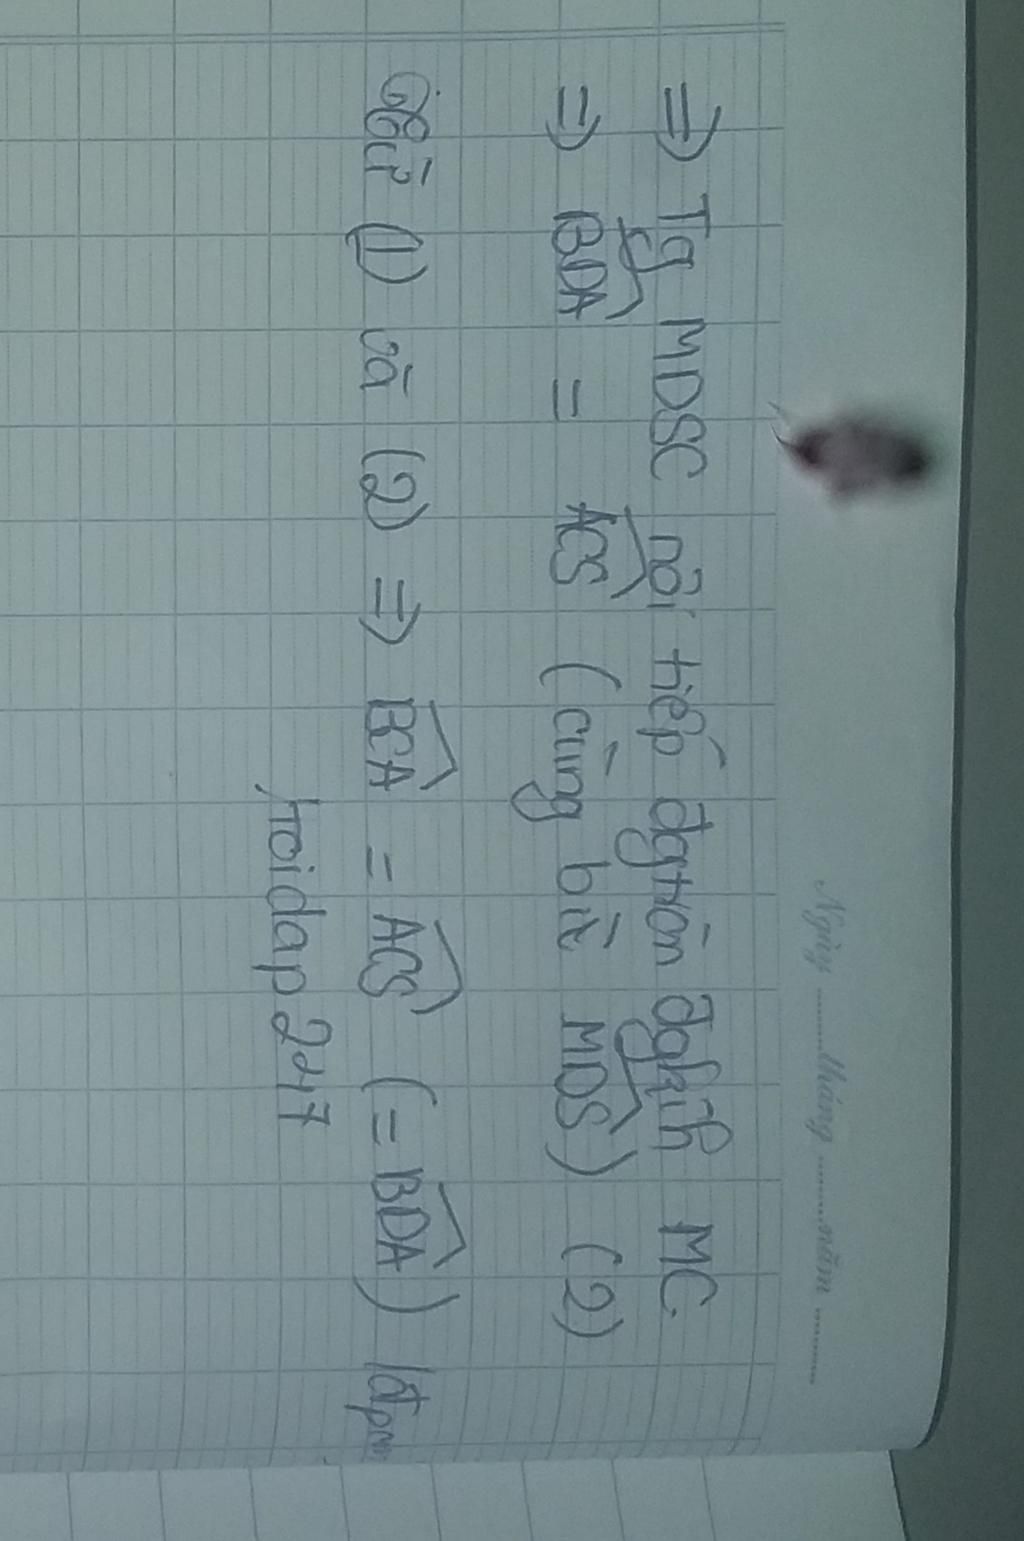 Ngày ........ tháng ........ năm ........
=> Tg MDSC nội tiếp đgtròn đgkính MC
=> BDA = ACS (cùng bù MDS) (2)
Từ (1) và (2) => BCA = ACS (= BDA) /đpcm
hoidap247